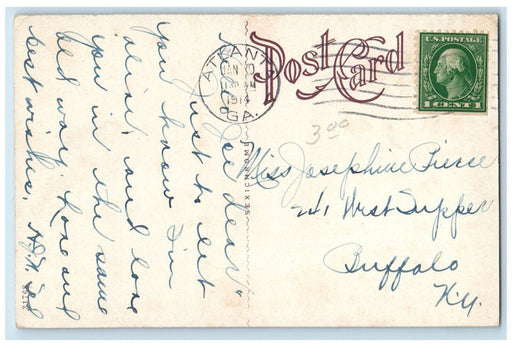 Post Card
U.S. POSTAGE
1 CENT 1
ATLANTA
JAN 20
1914
GA.
3.00
Joe dear
Just to let
you know I'm
alive, and love
you in the same
old way. Love and
best wishes.
SEXICHROME
Miss Josephine Pierce
241 West Tupper
Buffalo
N.Y.